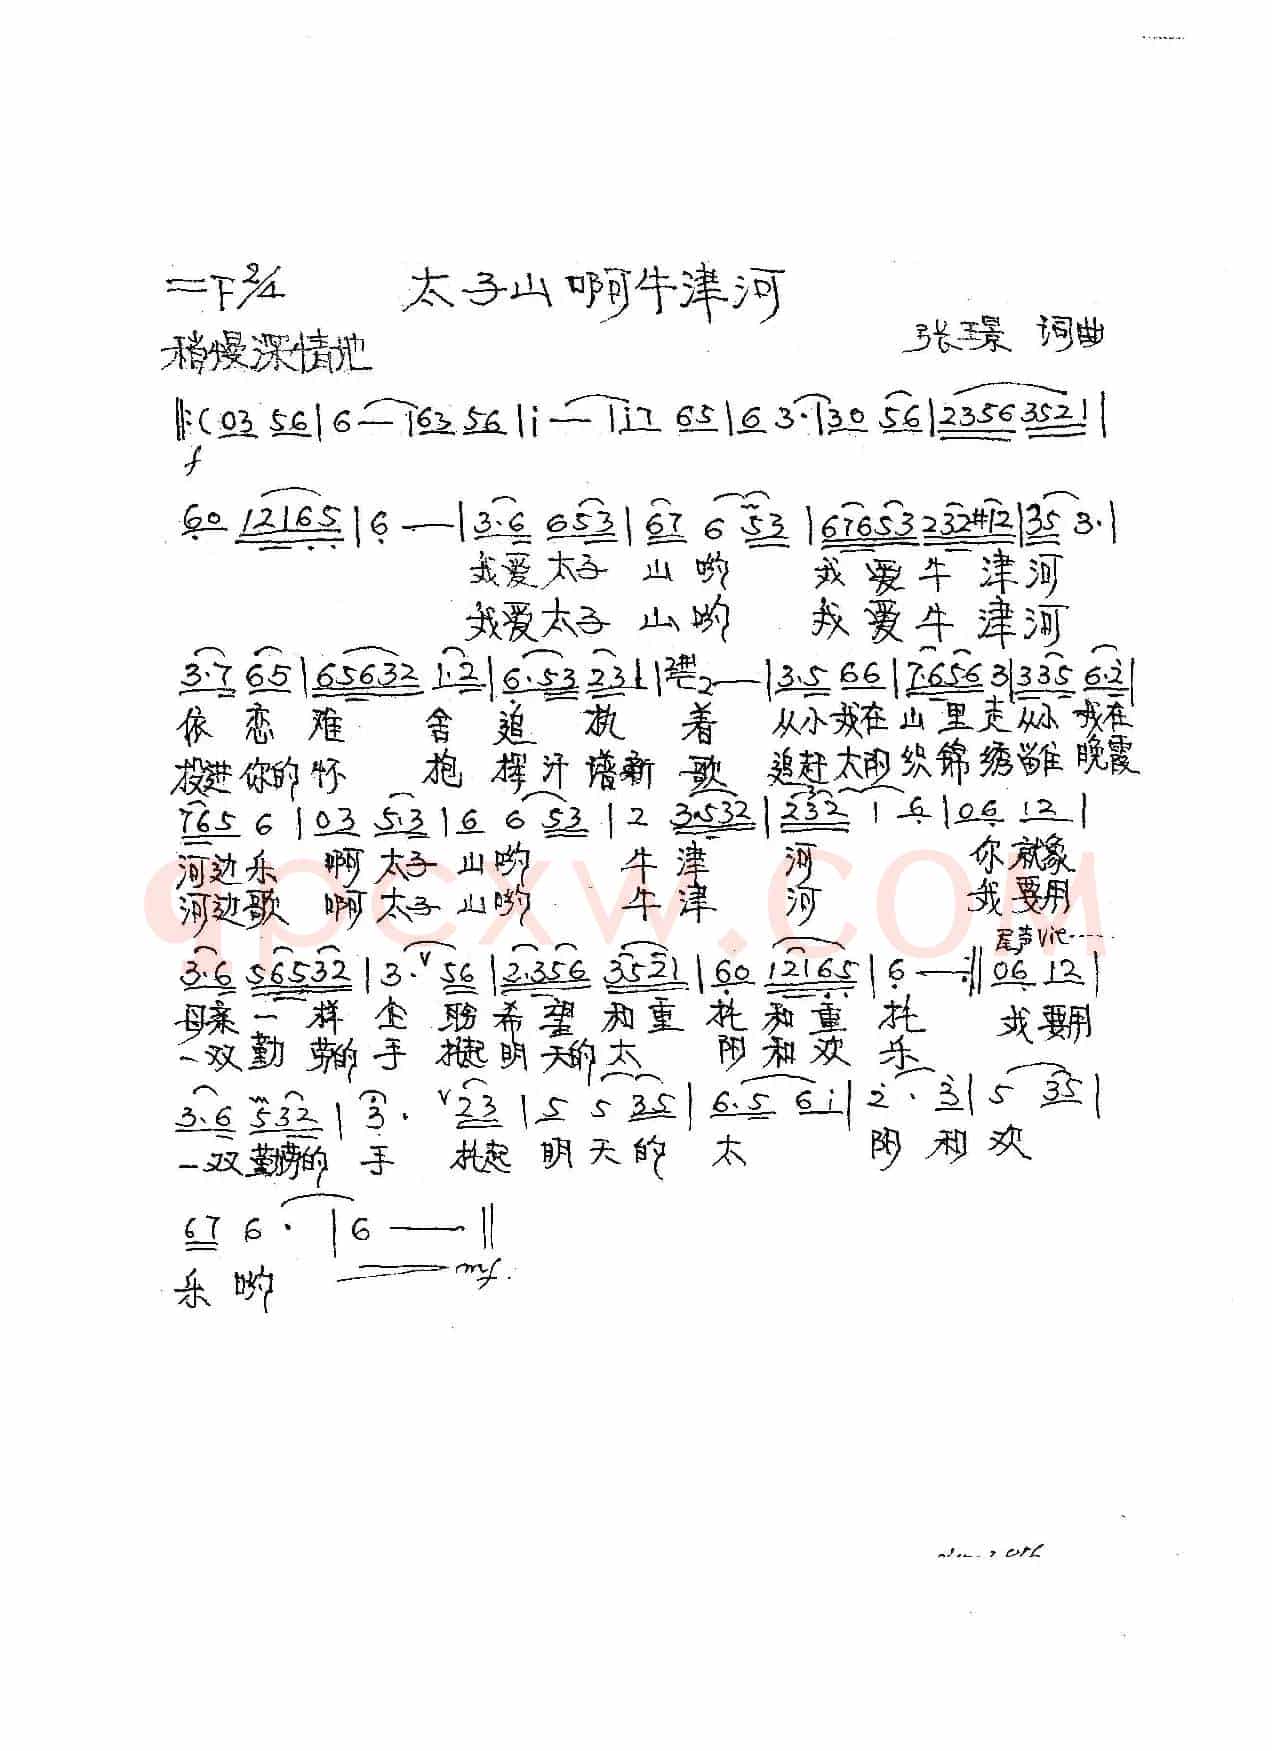 =F 2/4 太子山啊牛津河
稍慢深情地 张璟 词曲
‖:( 03 56 | 6 — | 63 56 | i — | i7 65 | 6 3· | 30 56 | 2356 3521 |
f
60 12165 | 6 — | 3·6 653 | 67 6 53 | 67653 232#12 | 35 3· |
我爱太子 山哟 我爱牛津河
我爱太子 山哟 我爱牛津河
3·7 65 | 65632 1·2 | 6·53 231 | 2 — | 3·5 66 | 7·656 3 | 335 6·2 |
依恋难 舍追执着 从小我在山里走从小我在
投进你的怀 抱挥汗谱新歌 追赶太阳织锦绣 晚霞
765 6 | 03 5·3 | 6 6 53 | 2 3·532 | 232 1 6 | 06 12 |
河边乐 啊太子山哟 牛津河 你就象
河边歌 啊太子山哟 牛津河 我要用
尾声
3·6 56532 | 3· v 56 | 2·356 3521 | 60 12165 | 6 — :‖ 06 12 |
母亲一样企盼希望和重托和重托 我要用
一双勤劳的手托起明天的太 阳和欢乐
3·6 532 | 3· v 23 | 5 5 35 | 6·5 6i | 2· 3 | 5 35 |
一双勤劳的手 托起明天的太 阳和欢
67 6· | 6 — ‖
乐哟 mf.
qpcxw.COM